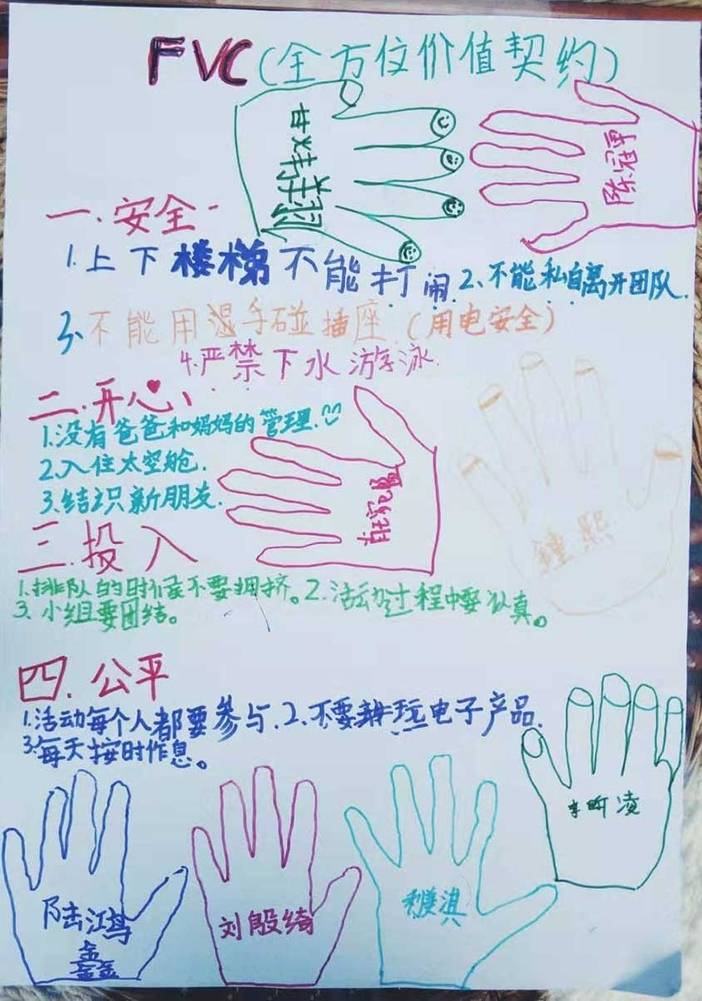 FVC(全方位价值契约)
陈冠宇
一.安全
1.上下楼梯不能打闹 2.不能私自离开团队.
3.不能用湿手碰插座(用电安全)
4.严禁下水游泳.
二.开心
1.没有爸爸和妈妈的管理.
2.入住太空舱.
3.结识新朋友.
鐘熙
三.投入
1.排队的时候不要拥挤。2.活动过程中要认真。
3.小组要团结。
四.公平
1.活动每个人都要参与.2.不要玩电子产品.
3.每天按时作息。
李昕凌
陆鸿鑫
刘殷绮
淇